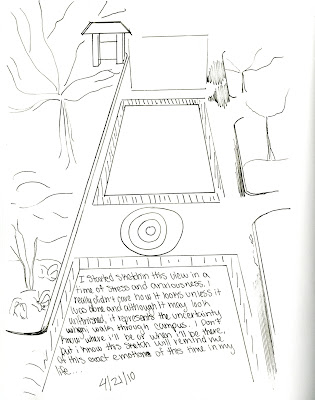 I started sketchin this view in a
time of stress and anxiousness. I
really didn't care how it looks unless it
was done and although it may look
unfinished, it represents the uncertainty
when walk through campus. I don't
know where i'll be or when i'll be there,
but i know this sketch will remind me
of this exact emotions of this time in my
life....
4/21/10